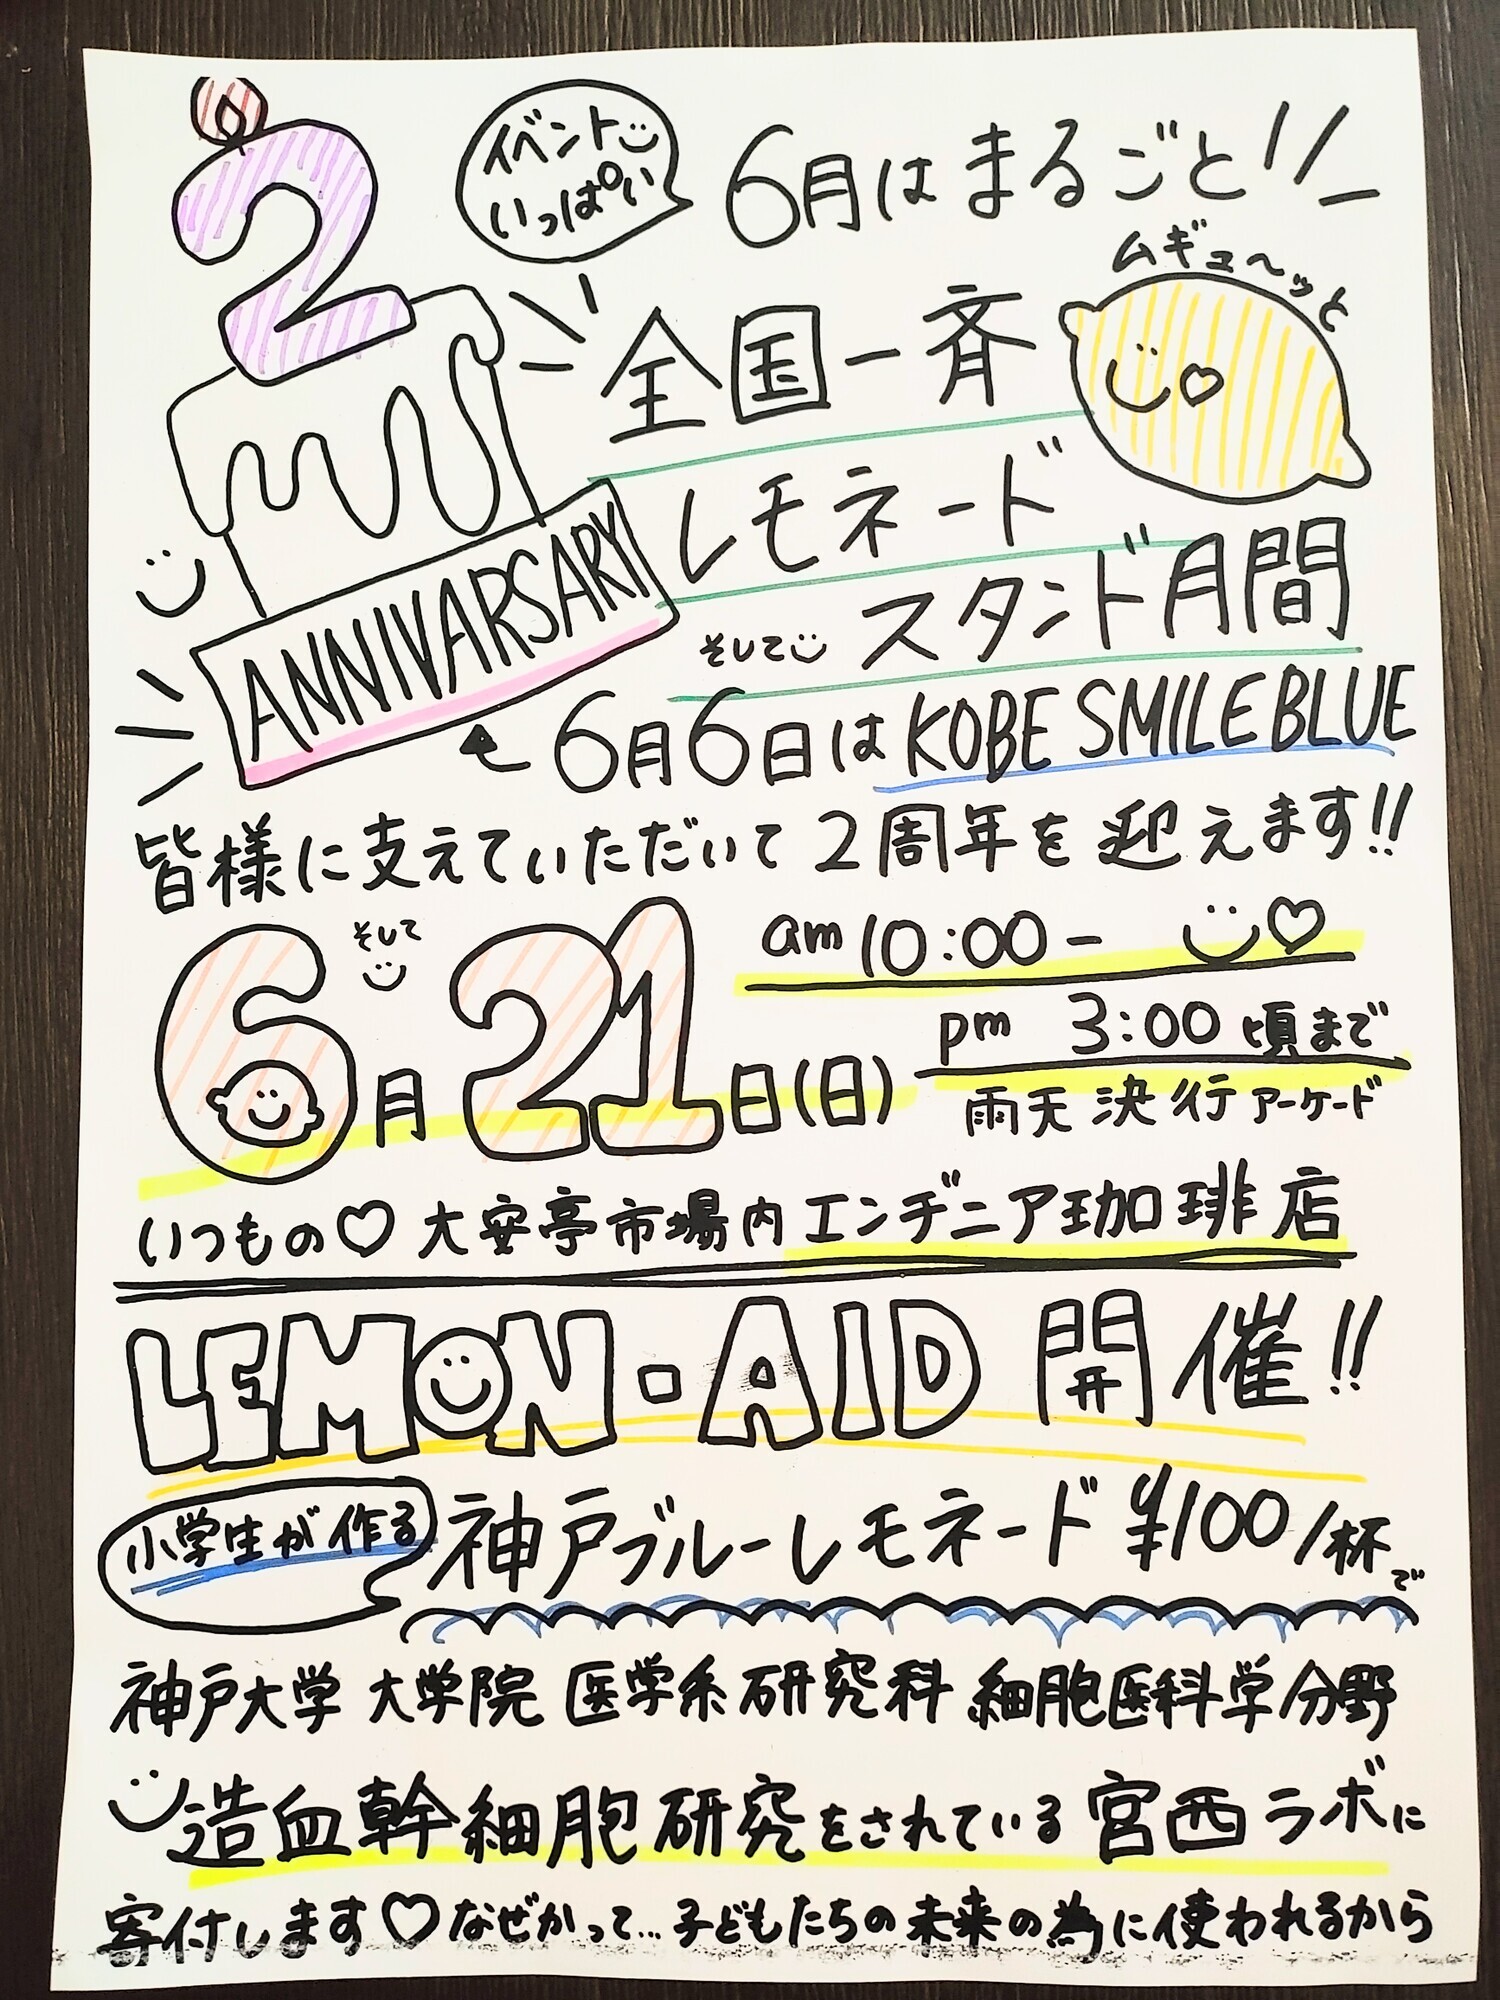 2
イベント
いっぱい
6月はまるごと!!
ムギュ〜ッと
全国一斉
レモネード
そして スタンド月間
ANNIVARSARY
6月6日はKOBE SMILE BLUE
皆様に支えていただいて2周年を迎えます!!
そして
6月21日(日)
am 10:00-
pm 3:00頃まで
雨天決行アーケード
いつもの♡大安亭市場内エンヂニア珈琲店
LEMON・AID 開催!!
小学生が作る
神戸ブルーレモネード ¥100/杯で
神戸大学 大学院 医学系研究科 細胞医科学分野
造血幹細胞研究をされている宮西ラボに
寄付します♡なぜかって…子どもたちの未来の為に使われるから